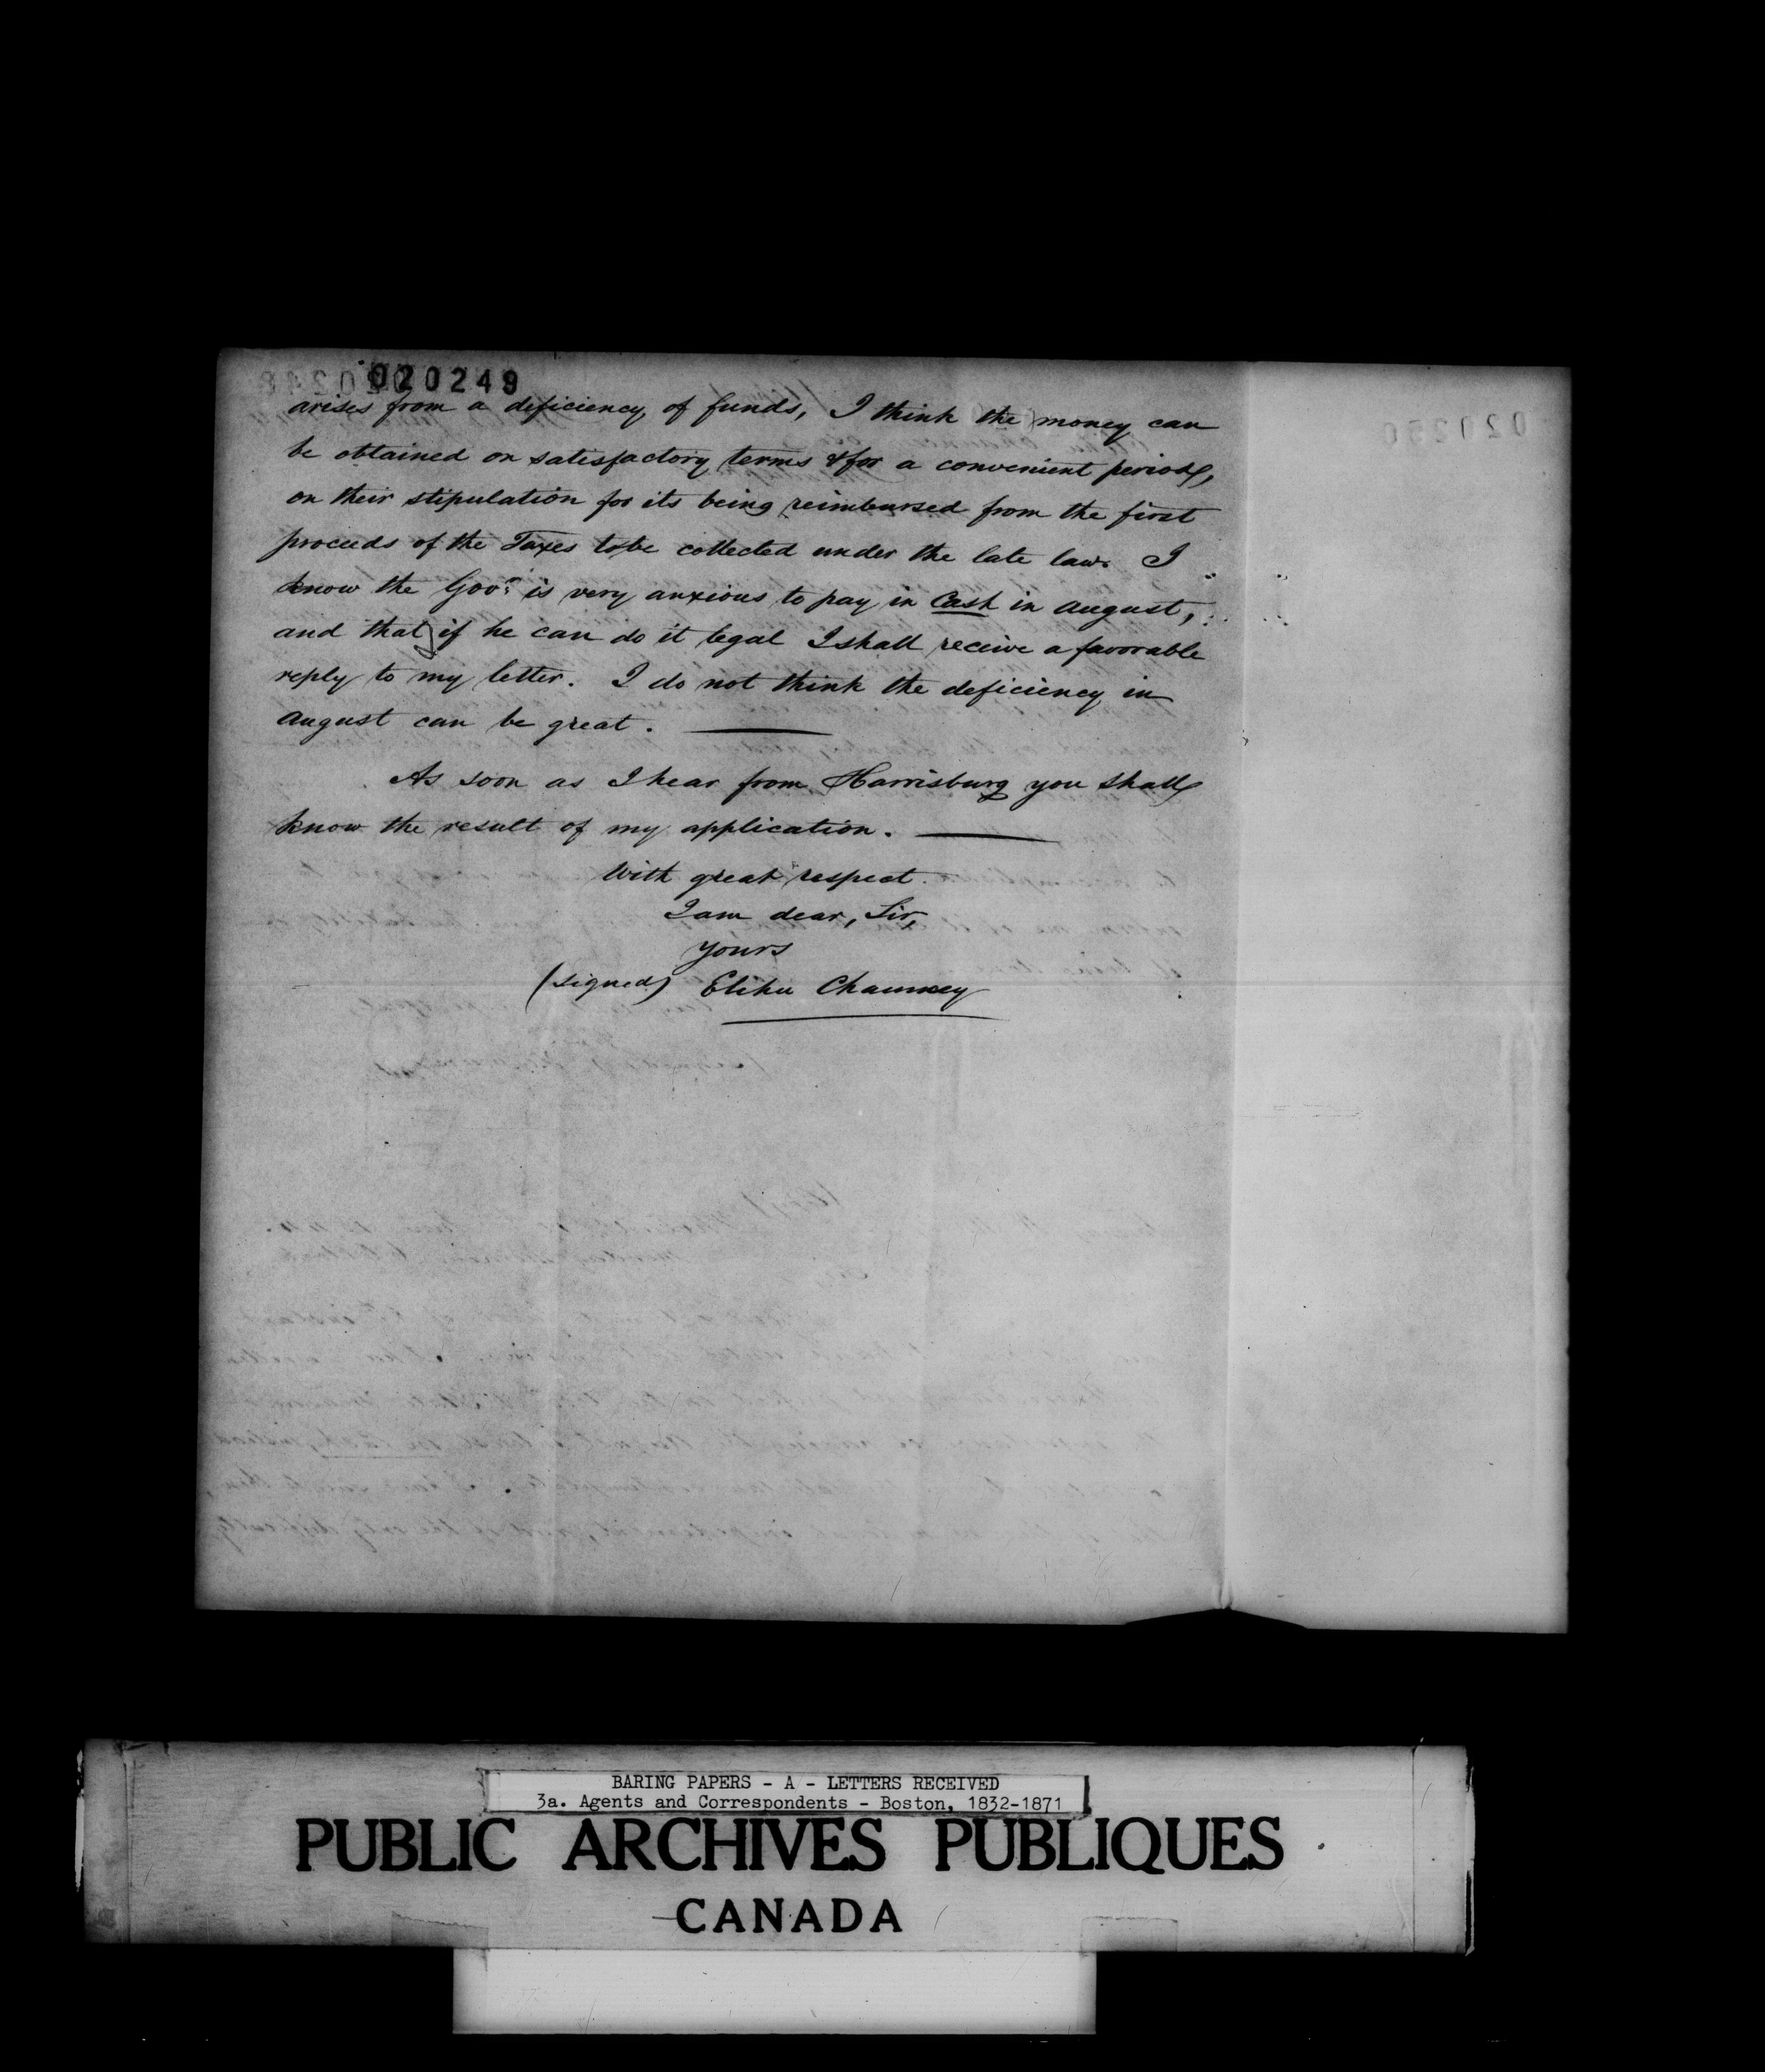 020249
arises from a deficiency of funds, I think the money can
be obtained on satisfactory terms & for a convenient period,
on their stipulation for its being reimbursed from the first
proceeds of the Taxes to be collected under the late law. I
know the Govr. is very anxious to pay in Cash in August,
and that if he can do it legal I shall receive a favorable
reply to my letter. I do not think the deficiency in
August can be great.
As soon as I hear from Harrisburg you shall
know the result of my application.
With great respect.
I am dear, Sir,
Yours
(signed) Elihu Chauncey
020250
BARING PAPERS - A - LETTERS RECEIVED
3a. Agents and Correspondents - Boston, 1832-1871
PUBLIC ARCHIVES PUBLIQUES
CANADA